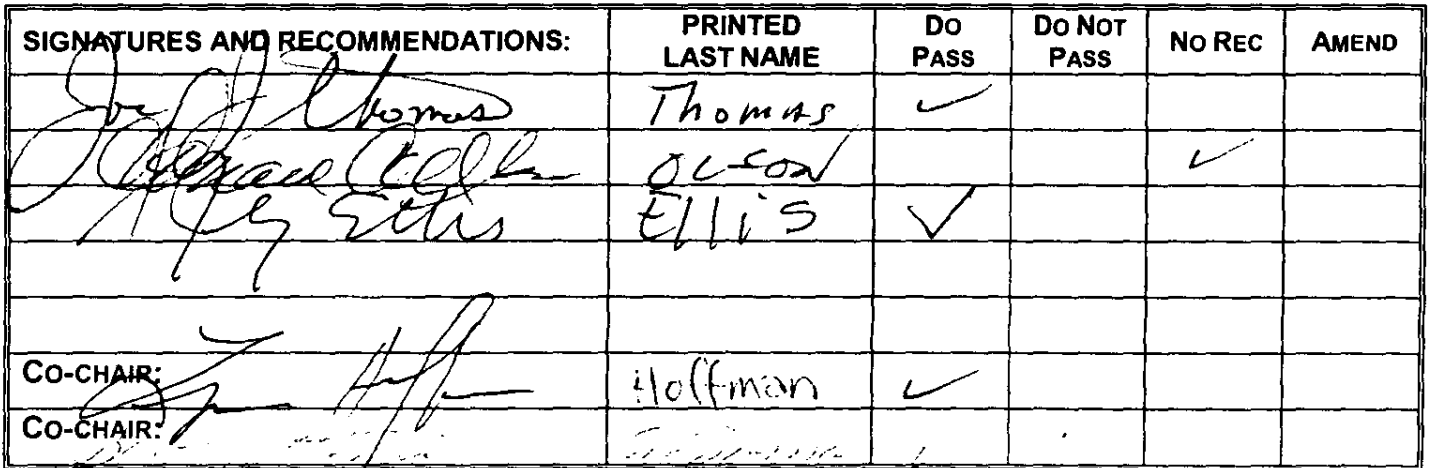 SIGNATURES AND RECOMMENDATIONS: PRINTED LAST NAME DO PASS DO NOT PASS NO REC AMEND
Joe J Thomas Thomas ✓
Olson ✓
Ellis Ellis ✓
CO-CHAIR: Hoffman ✓
CO-CHAIR: